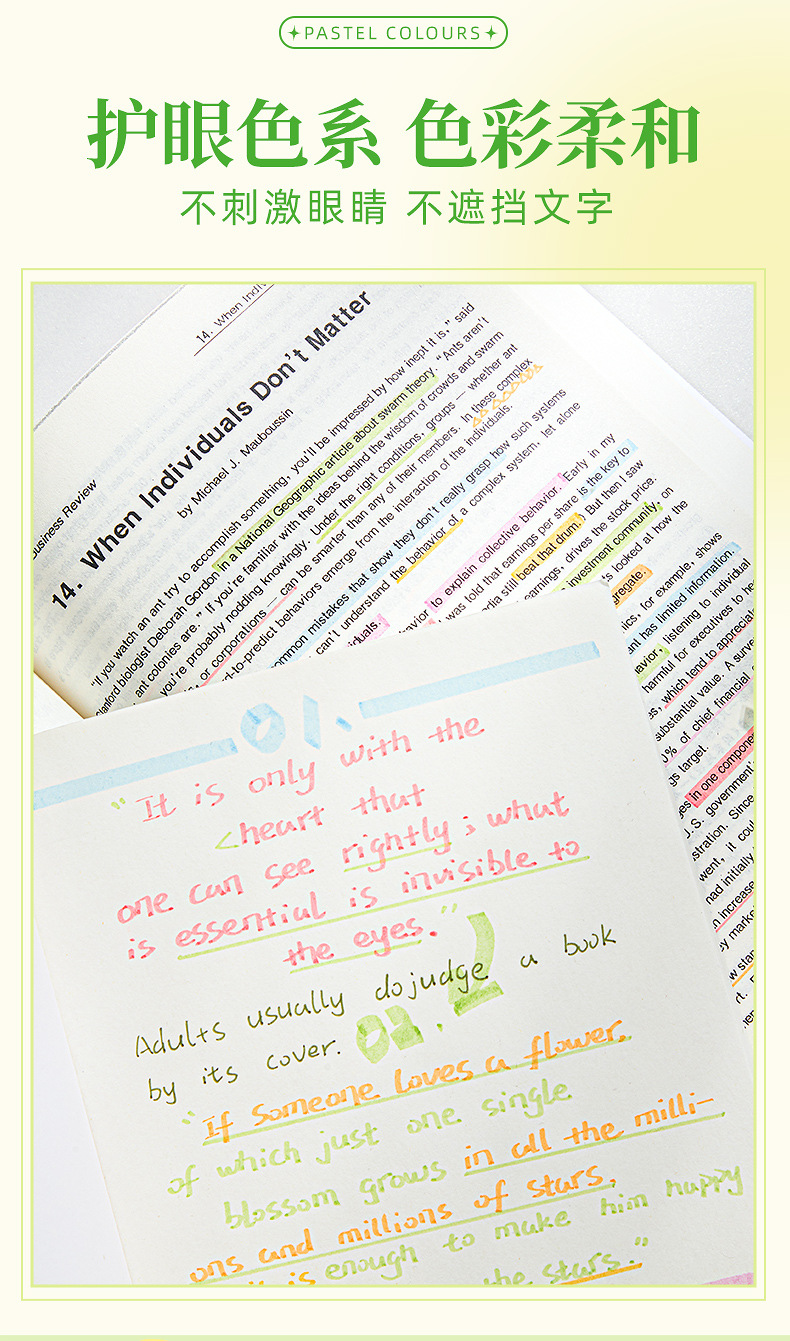 PASTEL COLOURS
护眼色系 色彩柔和
不刺激眼睛 不遮挡文字
14. When Indivi
Business Review
14. When Individuals Don't Matter
by Michael J. Mauboussin
"If you watch an ant try to accomplish something, you'll be impressed by how inept it is," said
Stanford biologist Deborah Gordon in a National Geographic article about swarm theory. "Ants aren't
ant colonies are." If you're familiar with the ideas behind the wisdom of crowds and swarm
you're probably nodding knowingly. Under the right conditions, groups — whether ant
or corporations — can be smarter than any of their members. In these complex
rd-to-predict behaviors emerge from the interaction of the individuals.
ommon mistakes that show they don't really grasp how such systems
can't understand the behavior of a complex system, let alone
iduals.
avior to explain collective behavior. Early in my
was told that earnings per share is the key to
dia still beat that drum. But then I saw
earnings, drives the stock price.
investment community, on
's looked at how the
gregate.
ics, for example, shows
nt has limited information.
avior, listening to individual
harmful for executives to he
es, which tend to appreciat
substantial value. A surve
0% of chief financial
gs target.
ges in one compone
U.S. government'
stration. Since
went, it cou
had initially
n increase
y marke
w stan
rt.
01.
"It is only with the
<heart that
one can see rightly; what
is essential is invisible to
the eyes."
Adults usually do judge a book
by its cover.
02.
"If someone loves a flower,
of which just one single
blossom grows in all the milli-
ons and millions of stars,
it is enough to make him happy
the stars."